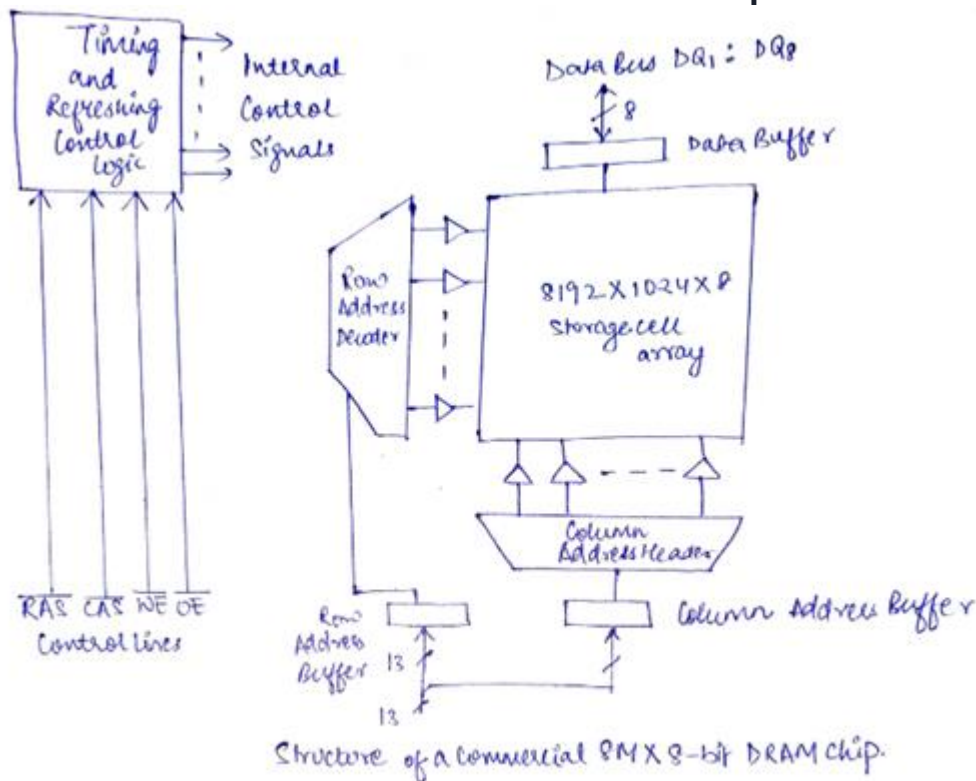 Timing
and
Refreshing
Control
Logic
Internal
Control
Signals
Data Bus DQ1 : DQ8
8
Data Buffer
Row
Address
Decoder
8192X1024X8
Storage cell
array
Column
Address Header
RAS CAS WE OE
Control Lines
Row
Address
Buffer
13
13
Column Address Buffer
Structure of a Commercial 8MX8-bit DRAM chip.